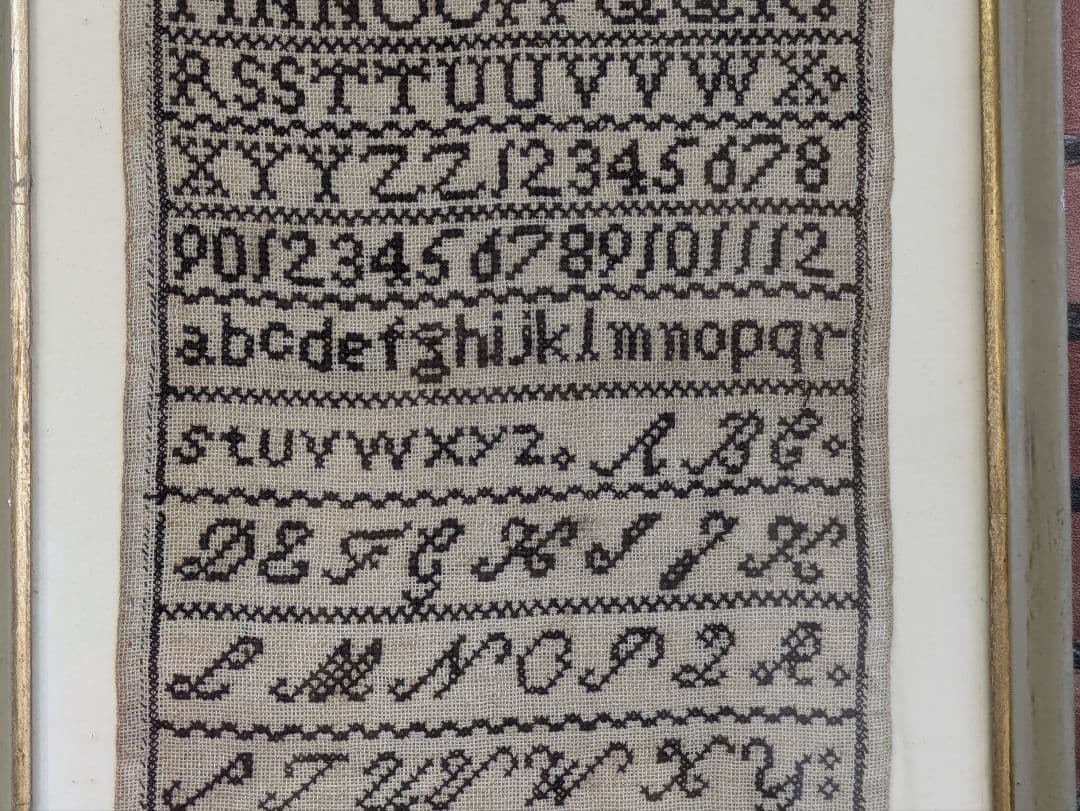 MNNOOPPQQR
RSSTTUUVVWX
XYYZZ12345678
90123456789101112
abcdefghijklmnopqr
stuvwxyz. A B C
D E F G H I J K
L M N O P Q R.
S T U V W X Y